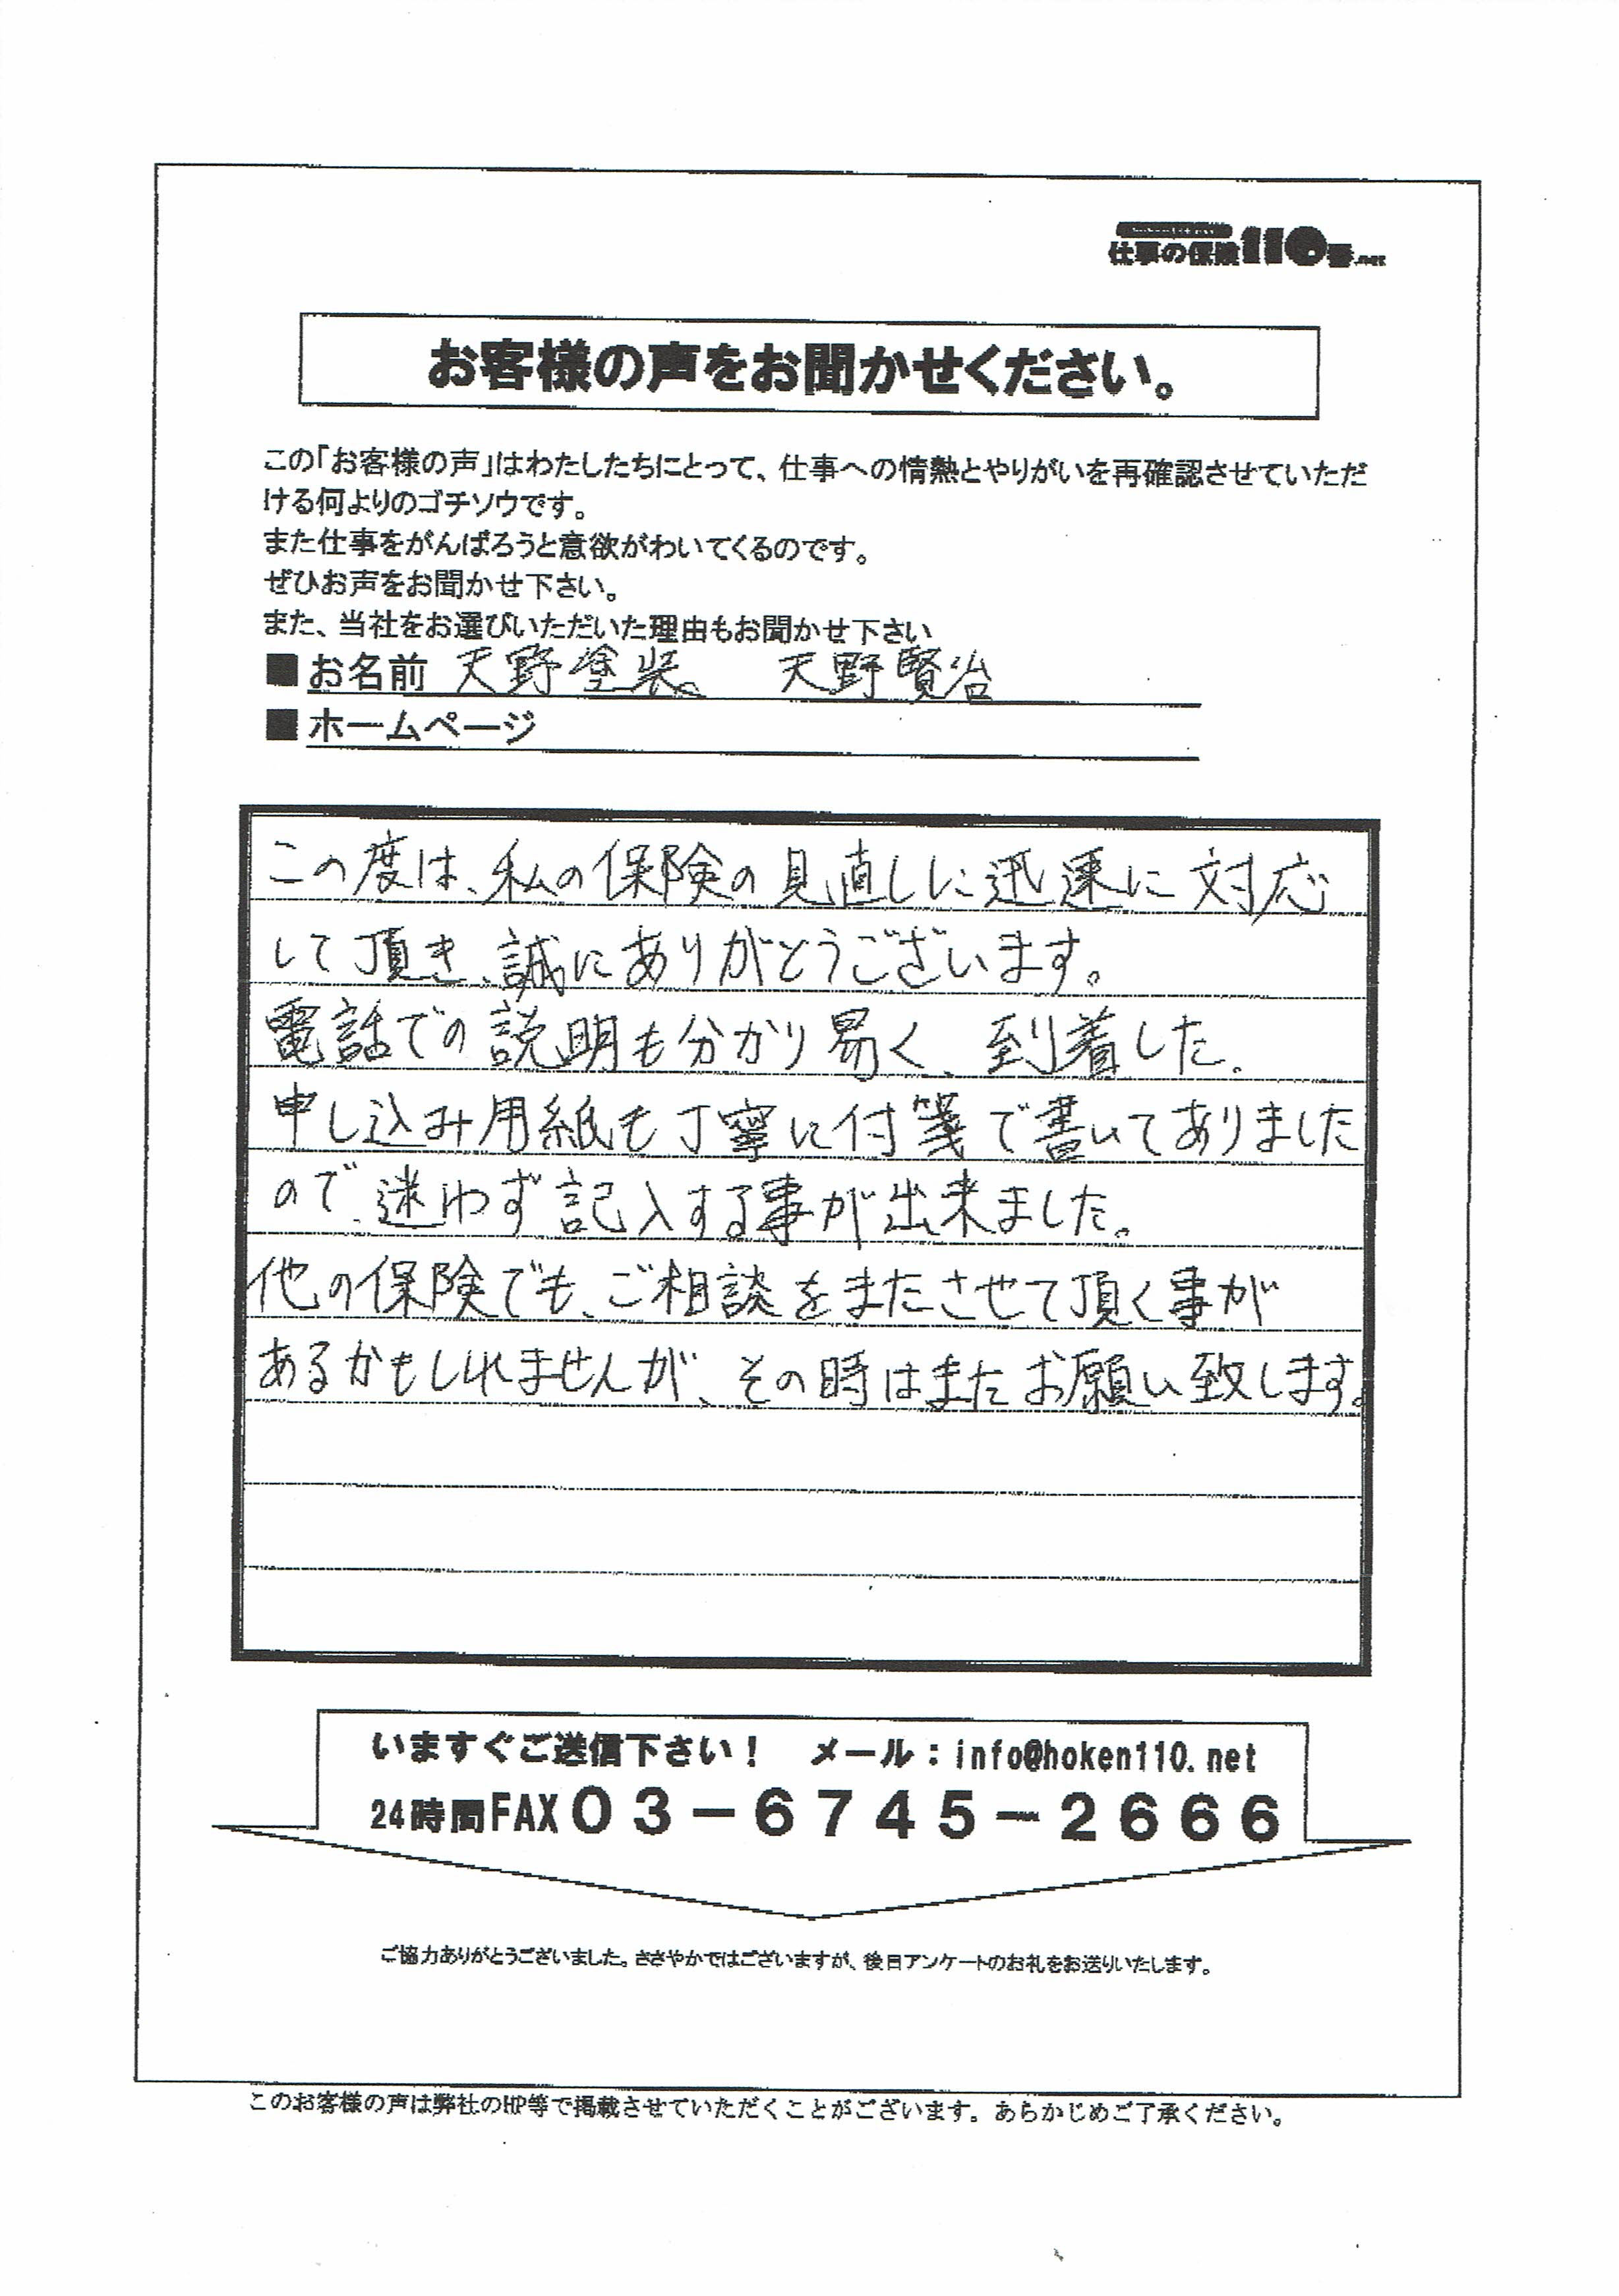 仕事の保険110番.net
お客様の声をお聞かせください。
この「お客様の声」はわたしたちにとって、仕事への情熱とやりがいを再確認させていただ
ける何よりのゴチソウです。
また仕事をがんばろうと意欲がわいてくるのです。
ぜひお声をお聞かせ下さい。
また、当社をお選びいただいた理由もお聞かせ下さい
■お名前 天野塗装 天野賢治
■ホームページ
この度は、私の保険の見直しに迅速に対応
して頂き、誠にありがとうございます。
電話での説明も分かり易く、到着した。
申し込み用紙も丁寧に付箋で書いてありました
ので、迷わず記入する事が出来ました。
他の保険でも、ご相談をまたさせて頂く事が
あるかもしれませんが、その時はまたお願い致します。
いますぐご送信下さい! メール:info@hoken110.net
24時間FAX03-6745-2666
ご協力ありがとうございました。ささやかではございますが、後日アンケートのお礼をお送りいたします。
このお客様の声は弊社のHP等で掲載させていただくことがございます。あらかじめご了承ください。